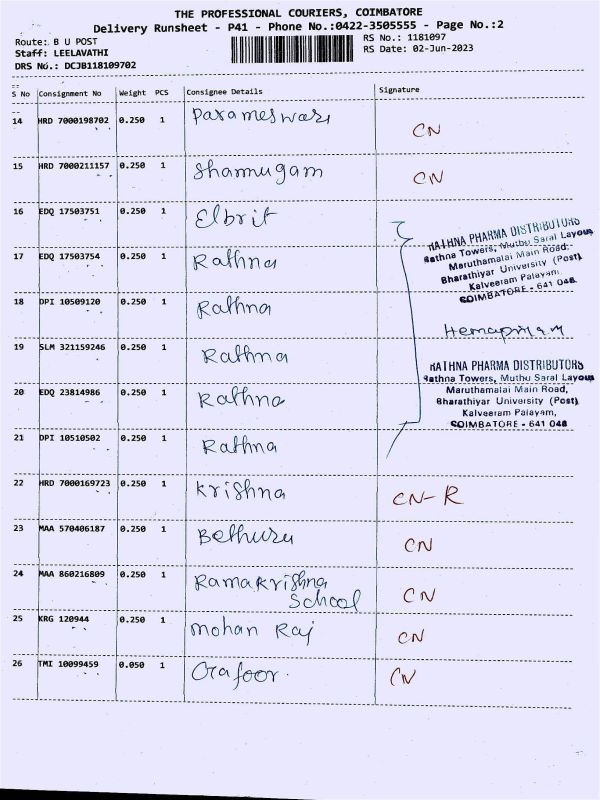 THE PROFESSIONAL COURIERS, COIMBATORE
Delivery Runsheet - P41 - Phone No.:0422-3505555 - Page No.:2
Route: B U POST
Staff: LEELAVATHI
DRS No.: DCJB118109702
RS No.: 1181097
RS Date: 02-Jun-2023
S No Consignment No Weight PCS Consignee Details Signature
14 HRD 7000198702 0.250 1 Parameswari CN
15 HRD 7000211157 0.250 1 Shanmugam CN
16 EDQ 17503751 0.250 1 Elbrit
17 EDQ 17503754 0.250 1 Rathna
RATHNA PHARMA DISTRIBUTORS
Rathna Towers, Muthu Saral Layout
Maruthamalai Main Road:
Bharathiyar University (Post)
Kalveeram Palayam,
COIMBATORE - 641 046
18 DPI 10509120 0.250 1 Rathna
19 SLM 321159246 0.250 1 Rathna
RATHNA PHARMA DISTRIBUTORS
Rathna Towers, Muthu Saral Layout
Maruthamalai Main Road,
Bharathiyar University (Post)
Kalveeram Palayam,
COIMBATORE - 641 046
20 EDQ 23814986 0.250 1 Rathna
21 DPI 10510502 0.250 1 Rathna
22 HRD 7000169723 0.250 1 Krishna CN-R
23 MAA 570406187 0.250 1 CN
24 MAA 860216809 0.250 1 Ramakrishna CN
School
25 KRG 120944 0.250 1 Mohan Raj CN
26 TMI 10099459 0.050 1 CN